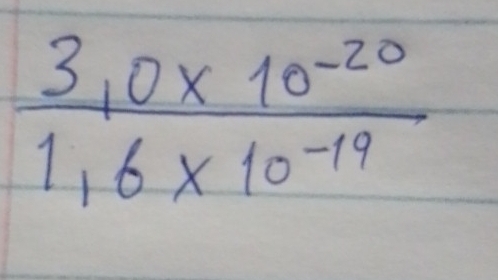 3,0 x 10⁻²⁰
1,6 x 10⁻¹⁹